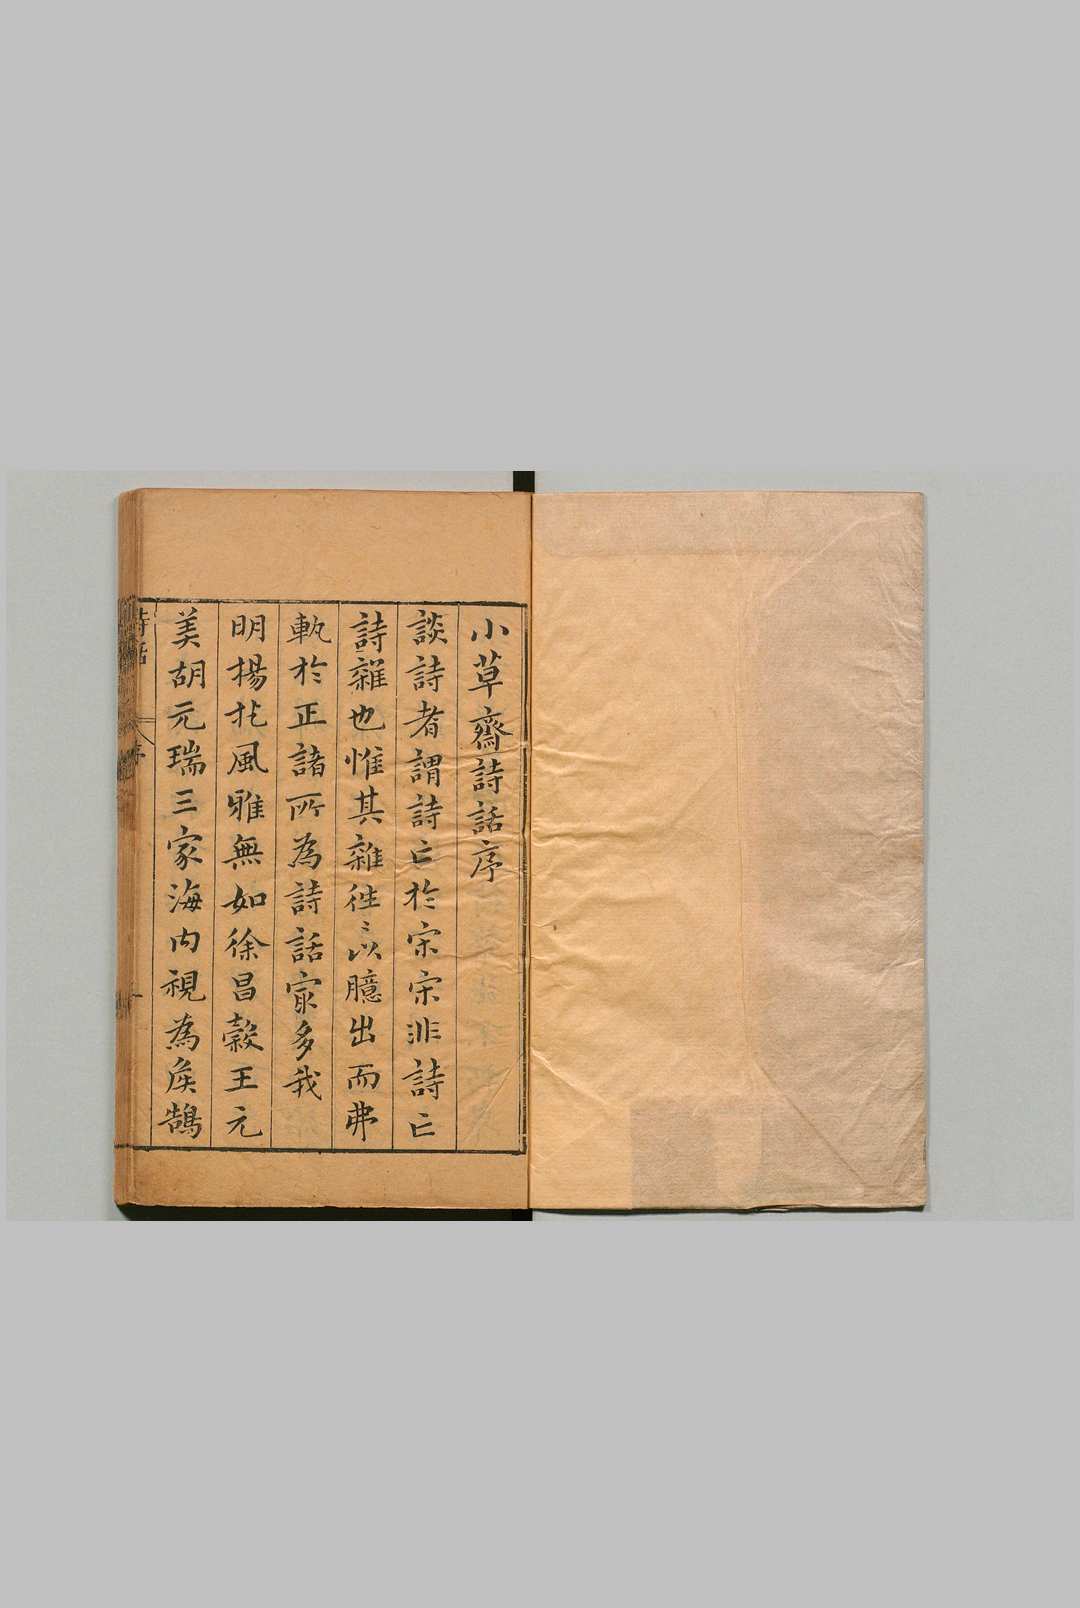 小草齋詩話序
談詩者謂詩亡於宋宋非詩亡
詩雜也惟其雜徃〻以臆出而弗
軌於正諸所為詩話家多我
明揚扢風雅無如徐昌穀王元
美胡元瑞三家海内視為矦鵠
詩話
序
一